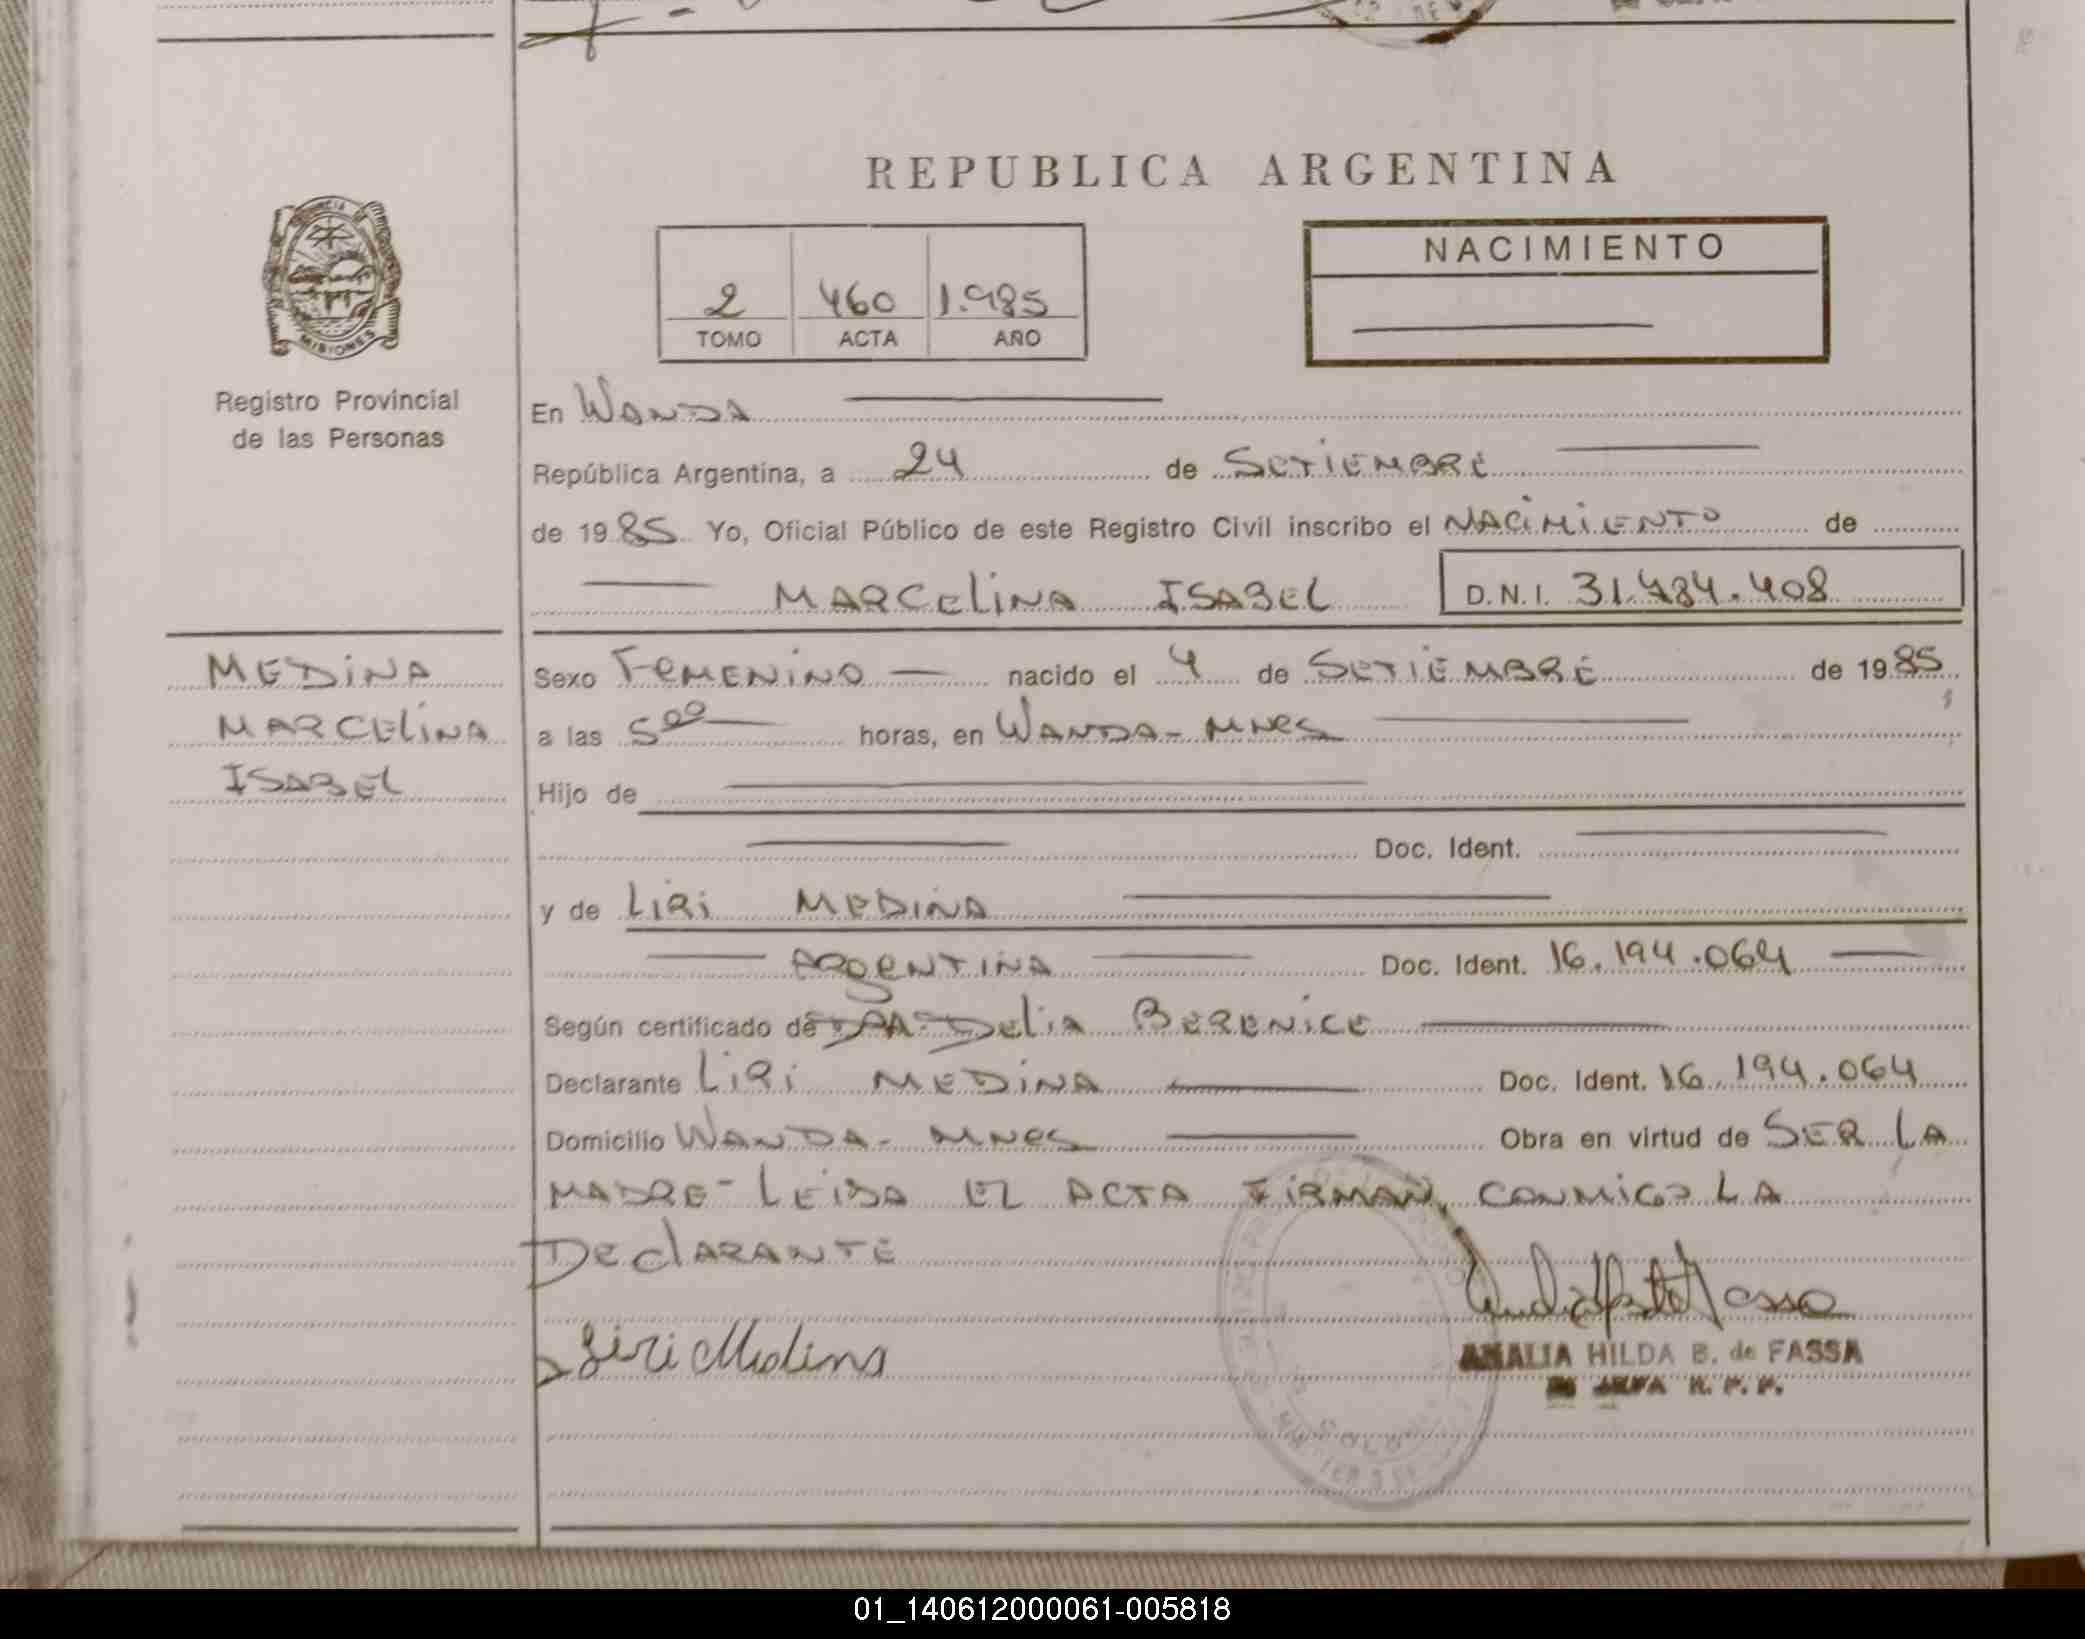 REPUBLICA ARGENTINA
NACIMIENTO
2 460 1.985
TOMO ACTA AÑO
MISIONES
Registro Provincial
de las Personas
En WANDA
República Argentina, a 24 de SETIEMBRE
de 1985 Yo, Oficial Público de este Registro Civil inscribo el NACIMIENTO de
MARCELINA ISABEL D.N.I. 31.484.408
MEDINA
MARCELINA
ISABEL
Sexo FEMENINO nacido el 4 de SETIEMBRE de 1985
a las 5 00 horas, en WANDA - MNES
Hijo de
Doc. Ident.
y de LIRI MEDINA
ARGENTINA Doc. Ident. 16.194.064
Según certificado de DRA. DELIA BERENICE
Declarante LIRI MEDINA Doc. Ident. 16.194.064
Domicilio WANDA - MNES Obra en virtud de SER LA
MADRE - LEIDA EL ACTA FIRMAN CONMIGO LA
DECLARANTE
Liri Medina
AMALIA HILDA B. de FASSA
JEFA R. P. P.
01_140612000061-005818